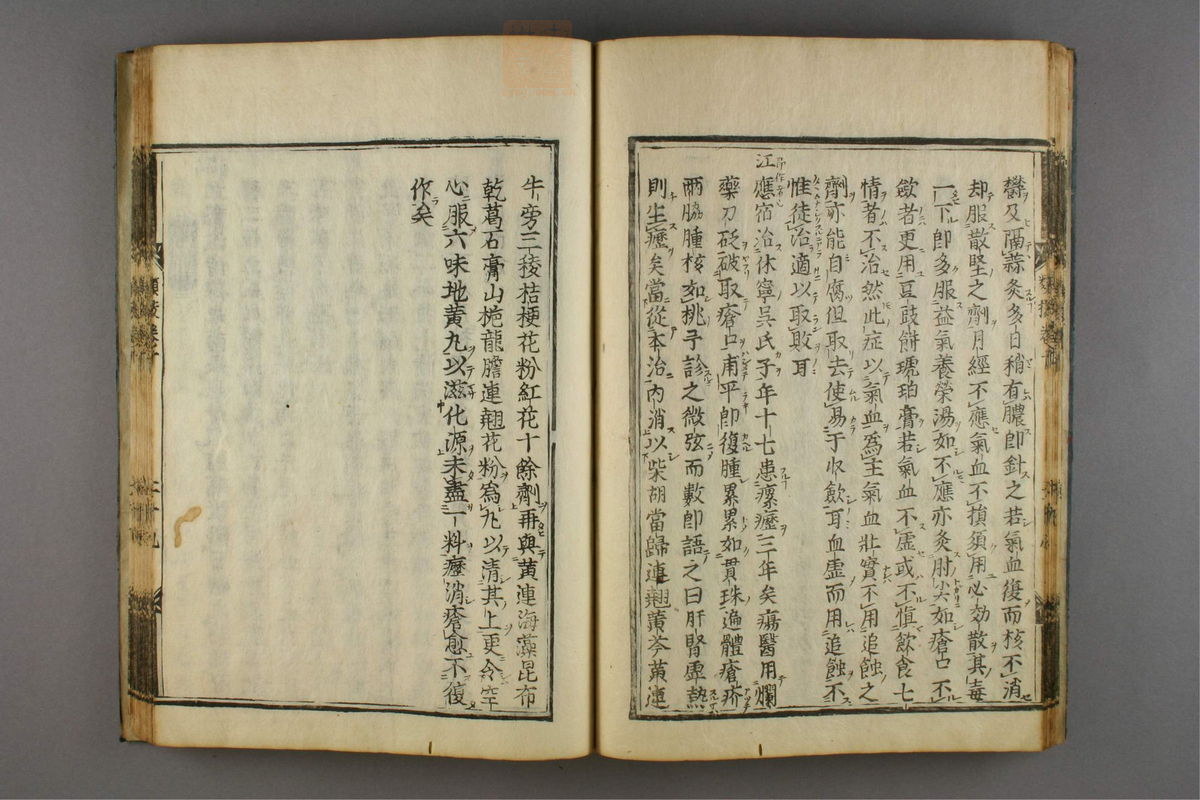 鬱及隔蒜灸多日稍有膿卽針之若氣血復而核不消
却服散堅之劑月經不應氣血不損須用必効散其毒
一下卽多服益氣養榮湯如不應亦灸肘尖如瘡口不
斂者更用豆豉餅琥珀膏若氣血不虛或不愼飲食七
情者不治然此症以氣血爲主氣血壯實不用追蝕之
劑亦能自腐但取去使易于収斂耳血虛而用追蝕不
惟徒治適以取敗耳
江應宿治休寧吳氏子年十七患瘰癧三年矣瘍醫用爛
藥刀砭破取瘡口甫平卽復腫累累如貫珠遍體瘡疥
兩脇腫核如桃子診之微弦而數卽語之曰肝腎虛熱
則生癧矣當從本治内消以柴胡當歸連翹黃芩黃連
牛旁三稜桔梗花粉紅花十餘劑再與黃連海藻昆布
乾葛石膏山梔龍膽連翹花粉爲丸以淸其上更令空
心服六味地黃丸以滋化源未盡一料癧消瘡愈不復
作矣